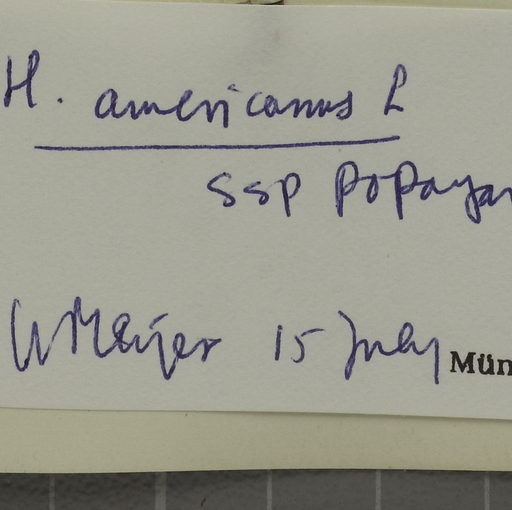 H. americanus L
ssp popayan
W Meijer 15 July Mün